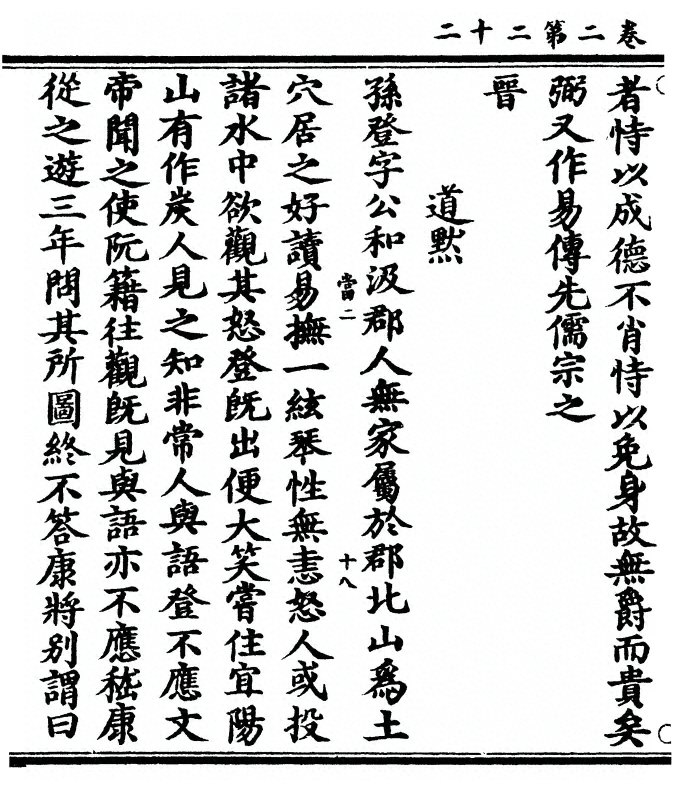 卷二第二十二
者恃以成德不肖恃以免身故無爵而貴矣
弼又作易傳先儒宗之
晉
道默
孫登字公和汲郡人無家屬於郡北山爲土
當二
十八
穴居之好讀易撫一絃琴性無恚怒人或投
諸水中欲觀其怒登旣出便大笑嘗住宜陽
山有作炭人見之知非常人與語登不應文
帝聞之使阮籍往觀旣見與語亦不應嵇康
從之遊三年問其所圖終不答康將别謂曰